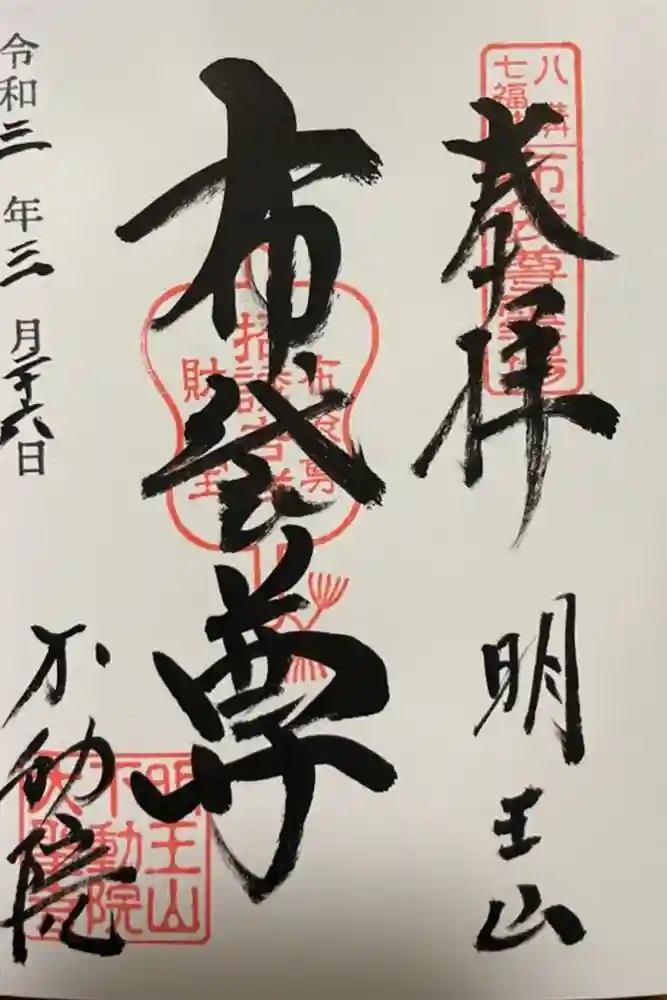 奉拝
明王山
布袋尊
令和三年三月二十六日
不動院
八溝
七福
布袋尊霊場
布袋尊
招談吉祥
財宝
明王山
不動院